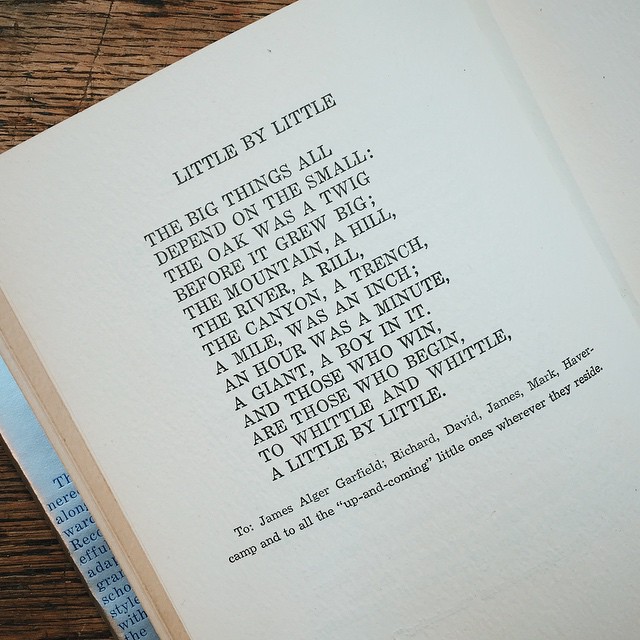 LITTLE BY LITTLE
THE BIG THINGS ALL
DEPEND ON THE SMALL:
THE OAK WAS A TWIG
BEFORE IT GREW BIG;
THE MOUNTAIN, A HILL,
THE RIVER, A RILL,
THE CANYON, A TRENCH,
A MILE, WAS AN INCH;
AN HOUR WAS A MINUTE,
A GIANT, A BOY IN IT.
AND THOSE WHO WIN,
ARE THOSE WHO BEGIN,
TO WHITTLE AND WHITTLE,
A LITTLE BY LITTLE.
To: James Alger Garfield; Richard, David, James, Mark, Haver-
camp and to all the "up-and-coming" little ones wherever they reside.
with
the